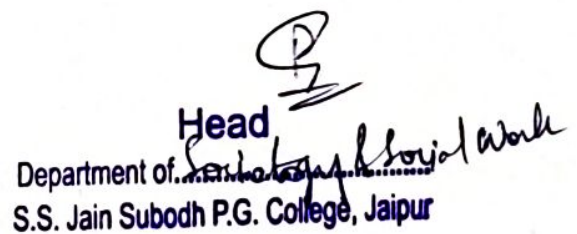 Head
Department of Sociology & Social Work
S.S. Jain Subodh P.G. College, Jaipur